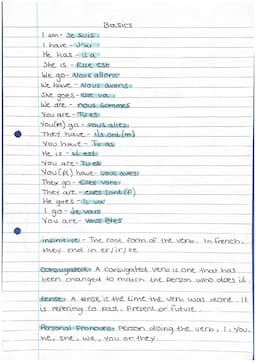 Basics
I am - Je suis
I have - J'ai
He has - il a
She is - Elle est
We go - Nous allons
We have - Nous avons
She goes - Elle va
We are - nous sommes
You are - Tu es
You (pl) go - vous allez
They have - ils ont (m)
You have - Tu as
He is - il est
You are - Tu es
You (pl) have - vous avez
They go - Elles vont
They are - elles sont (f)
He goes - il va
I go - Je vais
You are - vous êtes
infinitive - The root form of the verb. In French,
they end in er/ir/re
Conjugated - A conjugated verb is one that has
been changed to match the person who does it.
tense - A tense is the time the verb was done. It
is refering to past, Present or future.
Personal Pronouns - Person doing the verb, I, you,
he, she, we, you or they